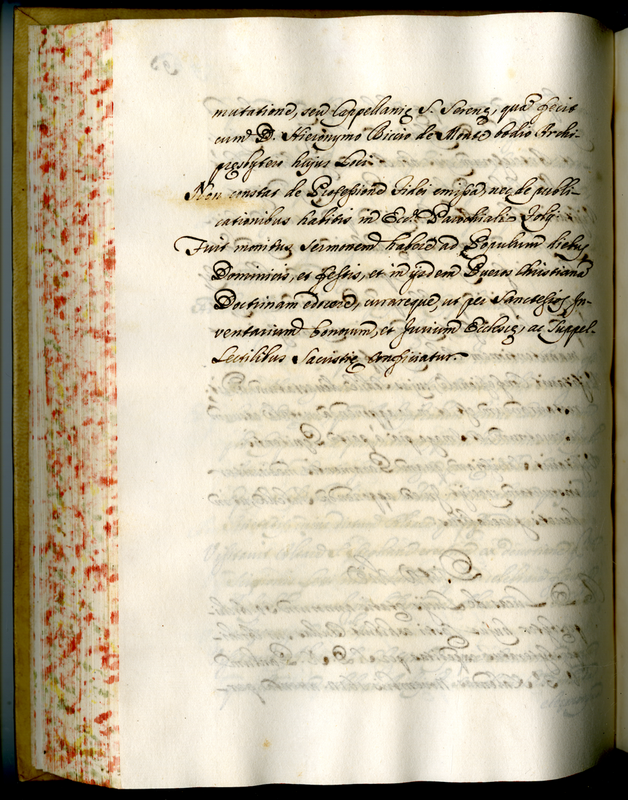 mutatione, seu Cappellanię S. Serenę, quā fecit
cum D. Hieronymo Biccio de Monte
presbytero hujus Loci
Non constat de Professione Fidei emissa, nec de publi-
cationibus habitis in Eccl. Parochiali
Fuit monitus Sermonem habere ad Populum diebus
Dominicis, et Festis, et in ijsdem Pueros Christianā
Doctrinam edocere, curareque, ut per Sanctesios In-
ventarium bonorum, et Jurium Ecclesię, ac Suppel-
lectilibus Sacristię conficiatur.